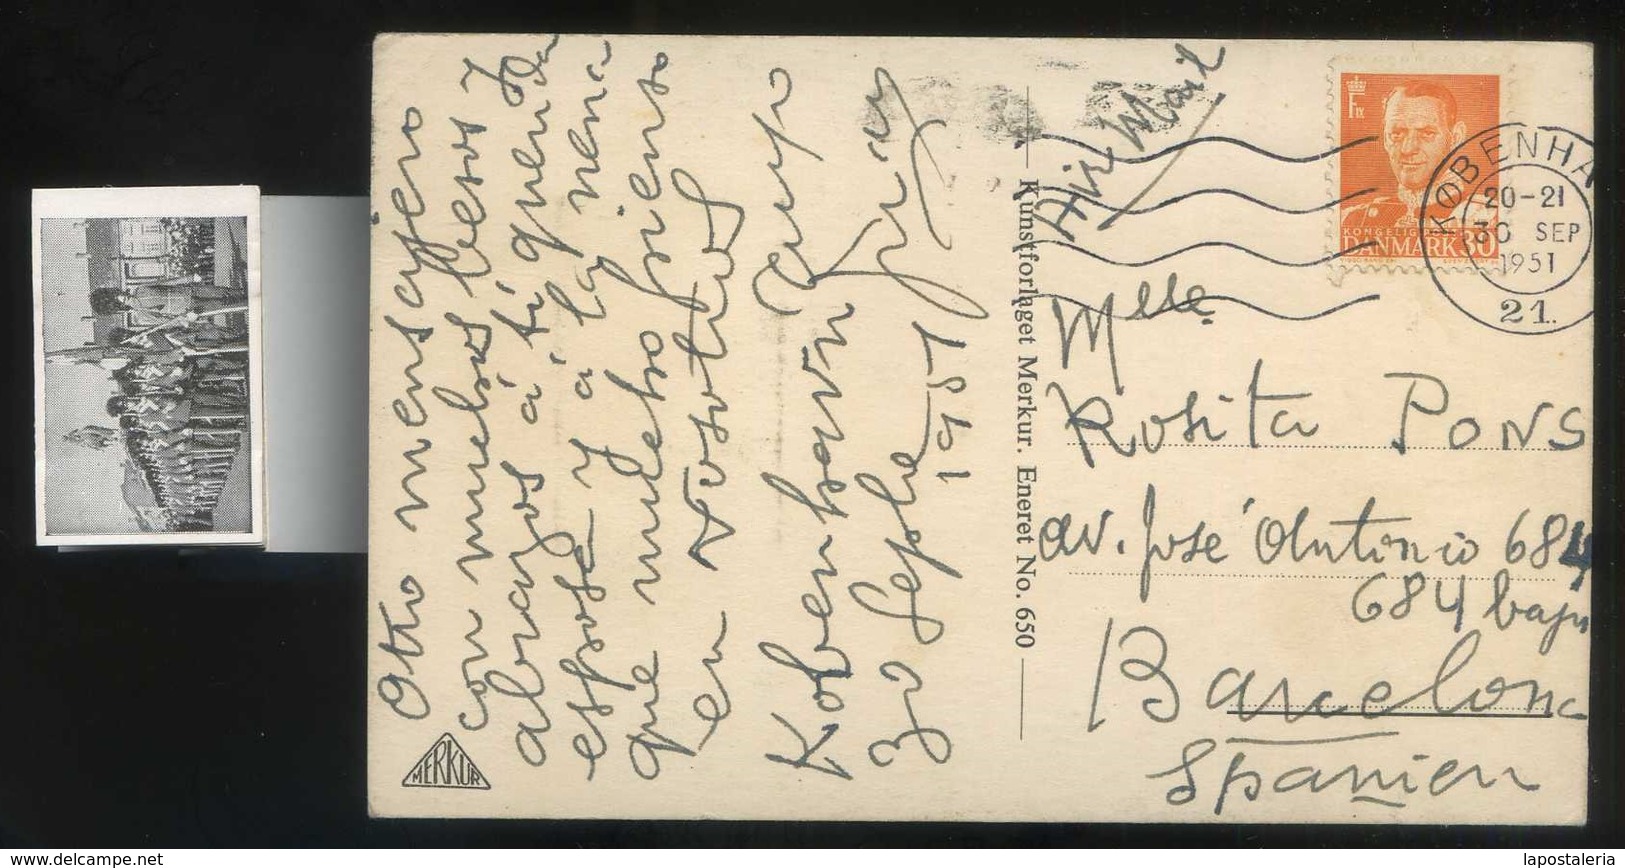 Otro mensajero
con muchos besos y
abrazos á tí querida
esposa y á la nena
que mucho pienso
en vosotros
Tuyo
Kobenhavn
30 Sepbre
1951
MERKUR
Kunstforlaget Merkur. Eneret No. 650
Air Mail
F IX
KONGELIG
DANMARK 30
KØBENHA
20-21
30 SEP
1951
21.
Mlle.
Rosita PONS
av. José Antonio 684
684 bajo
Barcelona
Spanien
www.delcampe.net
lapostaleria